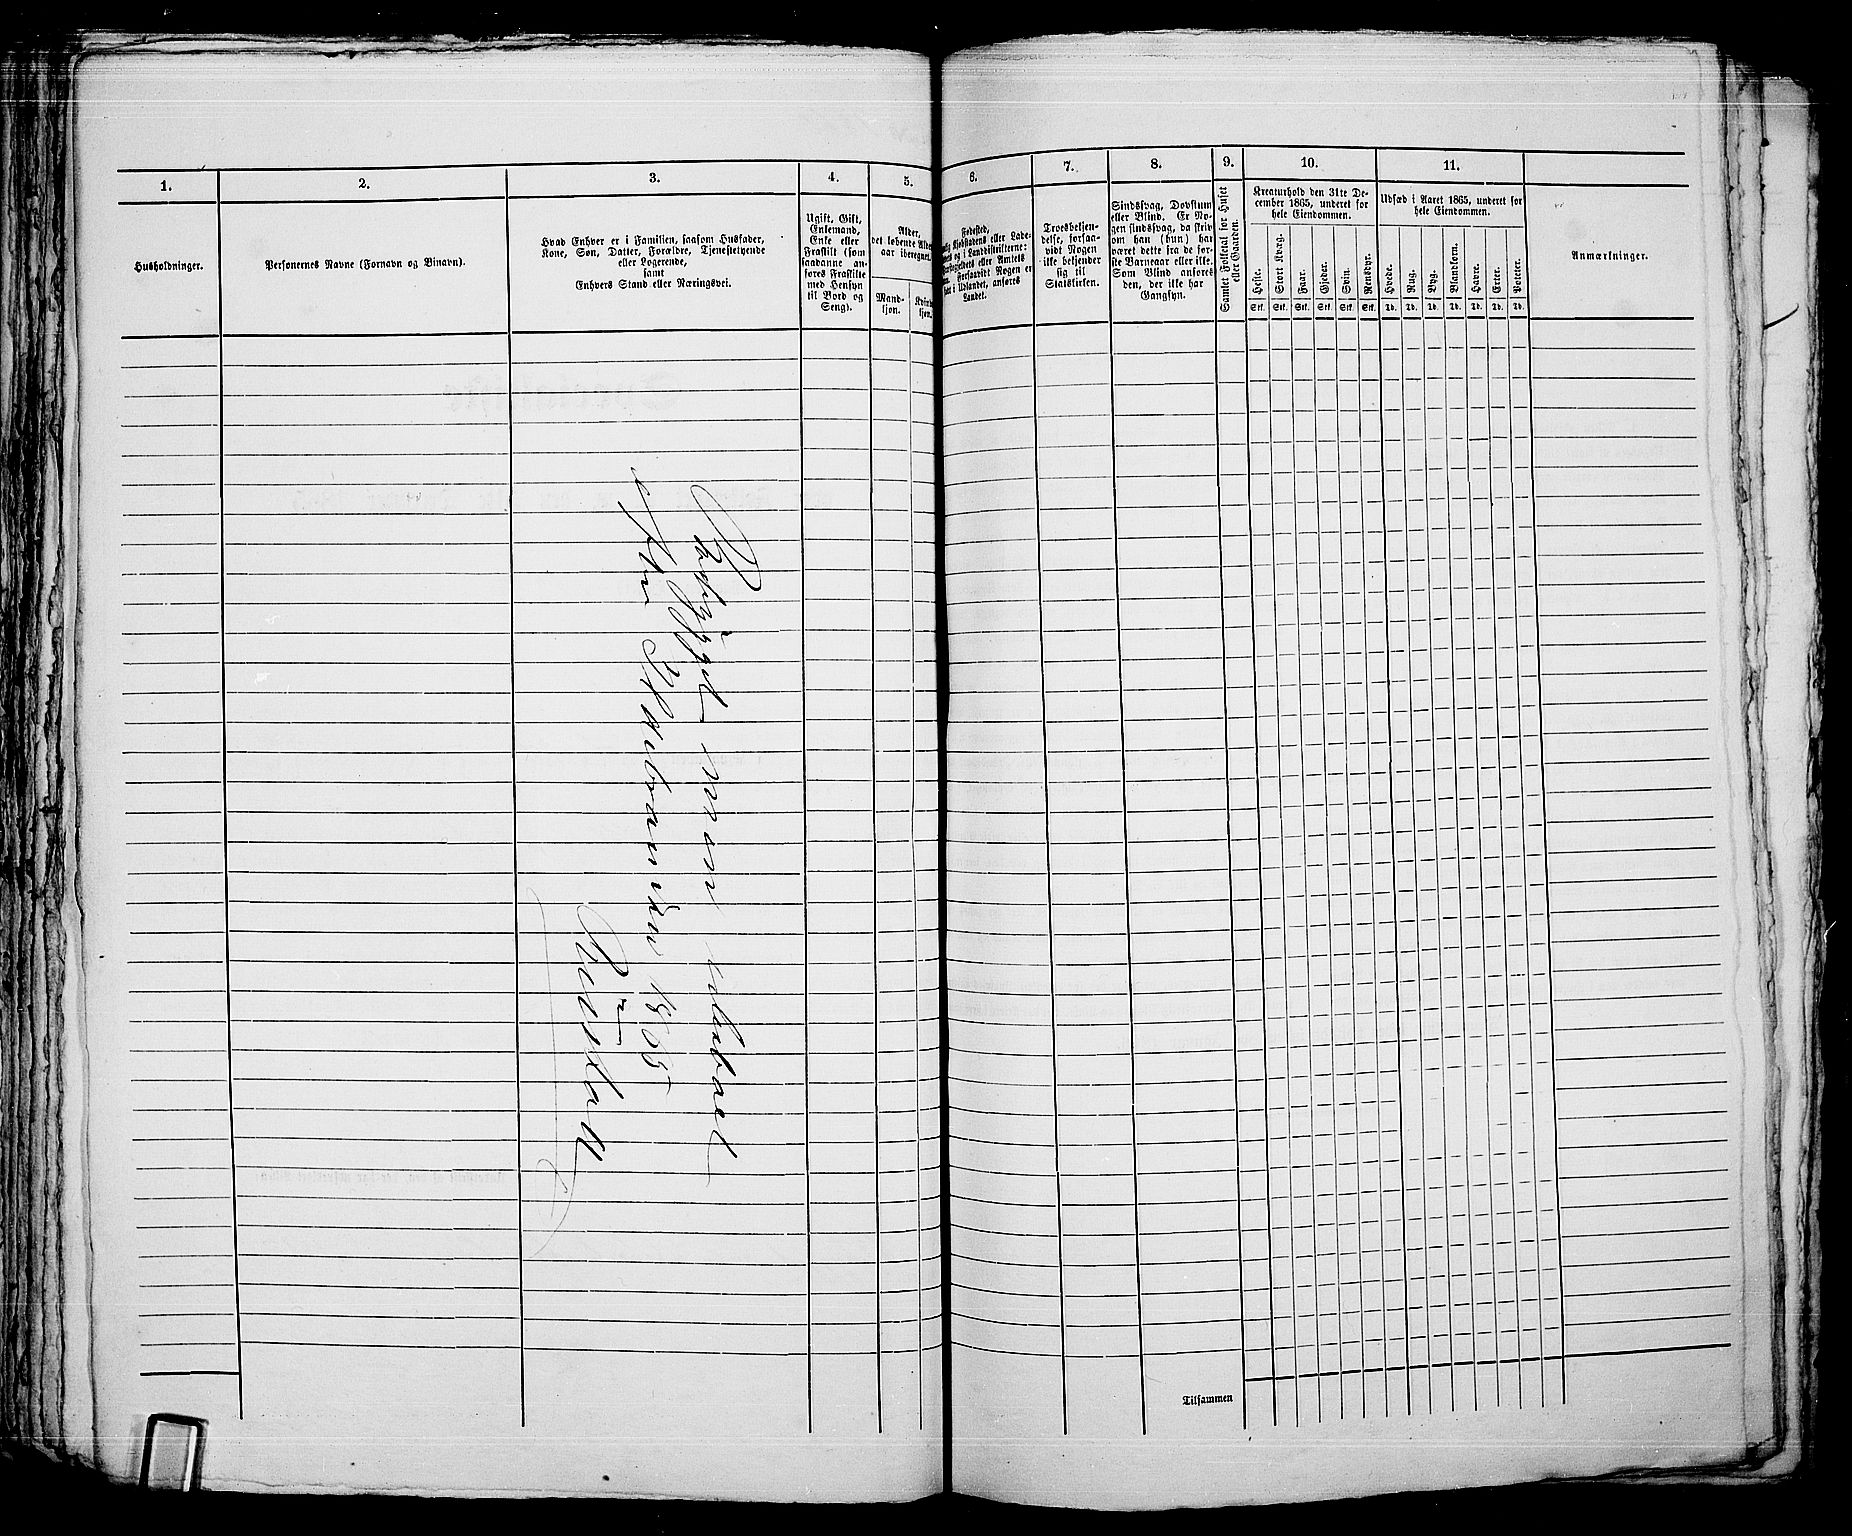 1.
2.
3.
4.
5.
6.
7.
8.
9.
10.
11.
Husholdninger.
Personernes Navne (Fornavn og Binavn).
Hvad Enhver er i Familien, saasom Husfader,
Kone, Søn, Datter, Forældre, Tjenestetyende
eller Logerende,
samt
Enhvers Stand eller Næringsvei.
Ugift, Gift,
Enkemand,
Enke eller
Fraskilt (som
saadanne an-
føres Fraskilte
med Hensyn
til Bord og
Seng).
Alder,
det løbende Alder
aar iberegnet.
Mand-
kjøn.
Kvinde
kjøn.
Fødested,
Kjøbstadens eller Lade-
og i Landdistrikterne:
eller Amtets
Forsaavidt Nogen er
i Udlandet, anføres
Landet.
Troesbekjen-
delse, forsaa-
vidt Nogen
ikke bekjender
sig til
Statskirken.
Sindssvag, Døvstum
eller Blind. Er No-
gen sindssvag, da skriv
om han (hun) har
været dette fra de før-
ste Barneaar eller ikke.
Som Blind anføres
den, der ikke har
Gangsyn.
Samlet Folketal for Huset
eller Gaarden.
Kreaturhold den 31te De-
cember 1865, underet for
hele Eiendommen.
Heste. Stort Kvæg. Faar. Gjeder. Svin. Rensdyr.
Stk. Stk. Stk. Stk. Stk. Stk.
Udsæd i Aaret 1865, underet for
hele Eiendommen.
Hvede. Rug. Byg. Blandkorn. Havre. Erter. Poteter.
Td. Td. Td. Td. Td. Td. Td.
Anmærkninger.
Bebygget men ubboet
efter Ildebranden 1865
Tilsammen